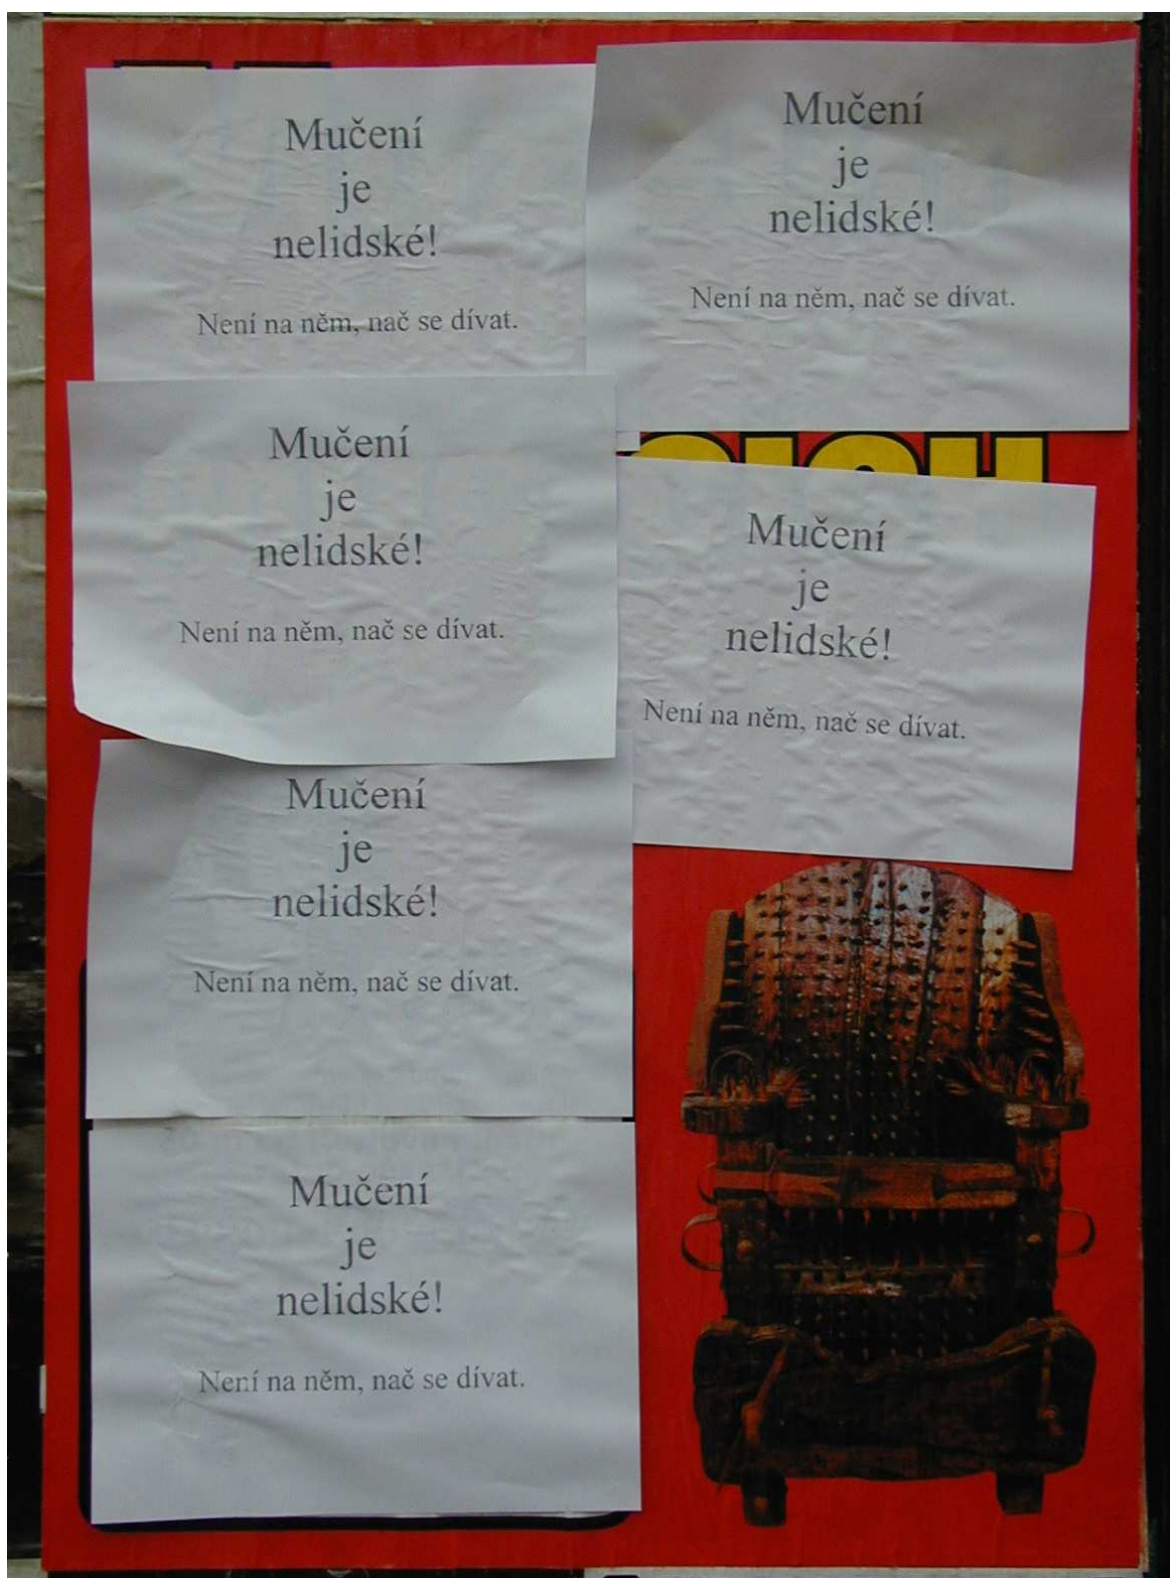 Mučení
je
nelidské!
Není na něm, nač se dívat.
Mučení
je
nelidské!
Není na něm, nač se dívat.
Mučení
je
nelidské!
Není na něm, nač se dívat.
Mučení
je
nelidské!
Není na něm, nač se dívat.
Mučení
je
nelidské!
Není na něm, nač se dívat.
Mučení
je
nelidské!
Není na něm, nač se dívat.